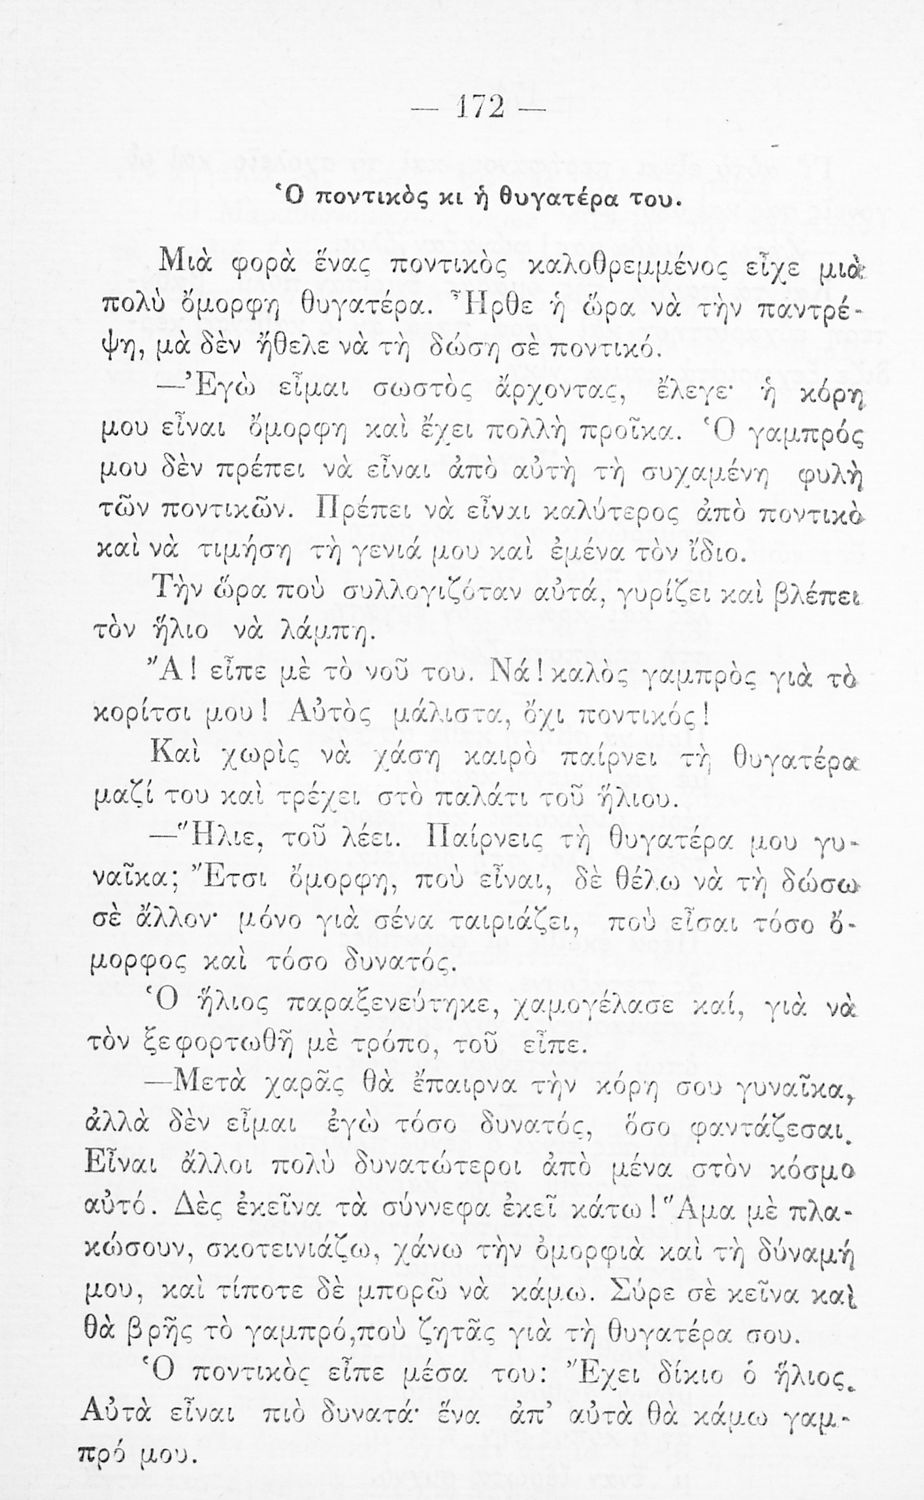 — 172 —
Ὁ ποντικὸς κι ἡ θυγατέρα του.
Μιὰ φορὰ ἕνας ποντικὸς καλοθρεμμένος εἶχε μιὰ
πολὺ ὄμορφη θυγατέρα. Ἦρθε ἡ ὥρα νὰ τὴν παντρέ-
ψη, μὰ δὲν ἤθελε νὰ τὴ δώση σὲ ποντικό.
—Ἐγὼ εἶμαι σωστὸς ἄρχοντας, ἔλεγε· ἡ κόρη
μου εἶναι ὄμορφη καὶ ἔχει πολλὴ προῖκα. Ὁ γαμπρός
μου δὲν πρέπει νὰ εἶναι ἀπὸ αὐτὴ τὴ συχαμένη φυλὴ
τῶν ποντικῶν. Πρέπει νὰ εἶναι καλύτερος ἀπὸ ποντικὸ
καὶ νὰ τιμήση τὴ γενιά μου καὶ ἐμένα τὸν ἴδιο.
Τὴν ὥρα ποὺ συλλογιζόταν αὐτά, γυρίζει καὶ βλέπει
τὸν ἥλιο νὰ λάμπη.
Ἄ! εἶπε μὲ τὸ νοῦ του. Νά! καλὸς γαμπρὸς γιὰ τὸ
κορίτσι μου! Αὐτὸς μάλιστα, ὄχι ποντικός!
Καὶ χωρὶς νὰ χάση καιρὸ παίρνει τὴ θυγατέρα
μαζί του καὶ τρέχει στὸ παλάτι τοῦ ἥλιου.
—Ἥλιε, τοῦ λέει. Παίρνεις τὴ θυγατέρα μου γυ-
ναῖκα; Ἔτσι ὄμορφη, ποὺ εἶναι, δὲ θέλω νὰ τὴ δώσω
σὲ ἄλλον· μόνο γιὰ σένα ταιριάζει, ποὺ εἶσαι τόσο ὄ-
μορφος καὶ τόσο δυνατός.
Ὁ ἥλιος παραξενεύτηκε, χαμογέλασε καί, γιὰ νὰ
τὸν ξεφορτωθῆ μὲ τρόπο, τοῦ εἶπε.
—Μετὰ χαρᾶς θὰ ἔπαιρνα τὴν κόρη σου γυναῖκα,
ἀλλὰ δὲν εἶμαι ἐγὼ τόσο δυνατός, ὅσο φαντάζεσαι.
Εἶναι ἄλλοι πολὺ δυνατώτεροι ἀπὸ μένα στὸν κόσμο
αὐτό. Δὲς ἐκεῖνα τὰ σύννεφα ἐκεῖ κάτω! Ἅμα μὲ πλα-
κώσουν, σκοτεινιάζω, χάνω τὴν ὀμορφιὰ καὶ τὴ δύναμή
μου, καὶ τίποτε δὲ μπορῶ νὰ κάμω. Σύρε σὲ κεῖνα καὶ
θὰ βρῆς τὸ γαμπρό,ποὺ ζητᾶς γιὰ τὴ θυγατέρα σου.
Ὁ ποντικὸς εἶπε μέσα του: Ἔχει δίκιο ὁ ἥλιος.
Αὐτὰ εἶναι πιὸ δυνατά· ἕνα ἀπ' αὐτὰ θὰ κάμω γαμ-
πρό μου.